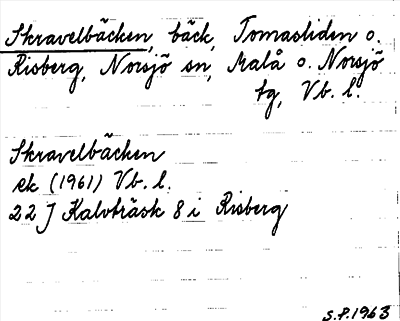 Skravelbäcken, bäck, Tomasliden o.
Risberg, Norsjö sn, Malå o. Norsjö
tg, Vb. l.
Skravelbäcken
ek (1961) Vb. l.
22 J Kalvträsk 8 i Risberg
S.P. 1963